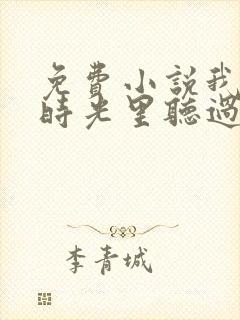 免費小說我
時光里聽過
李青城